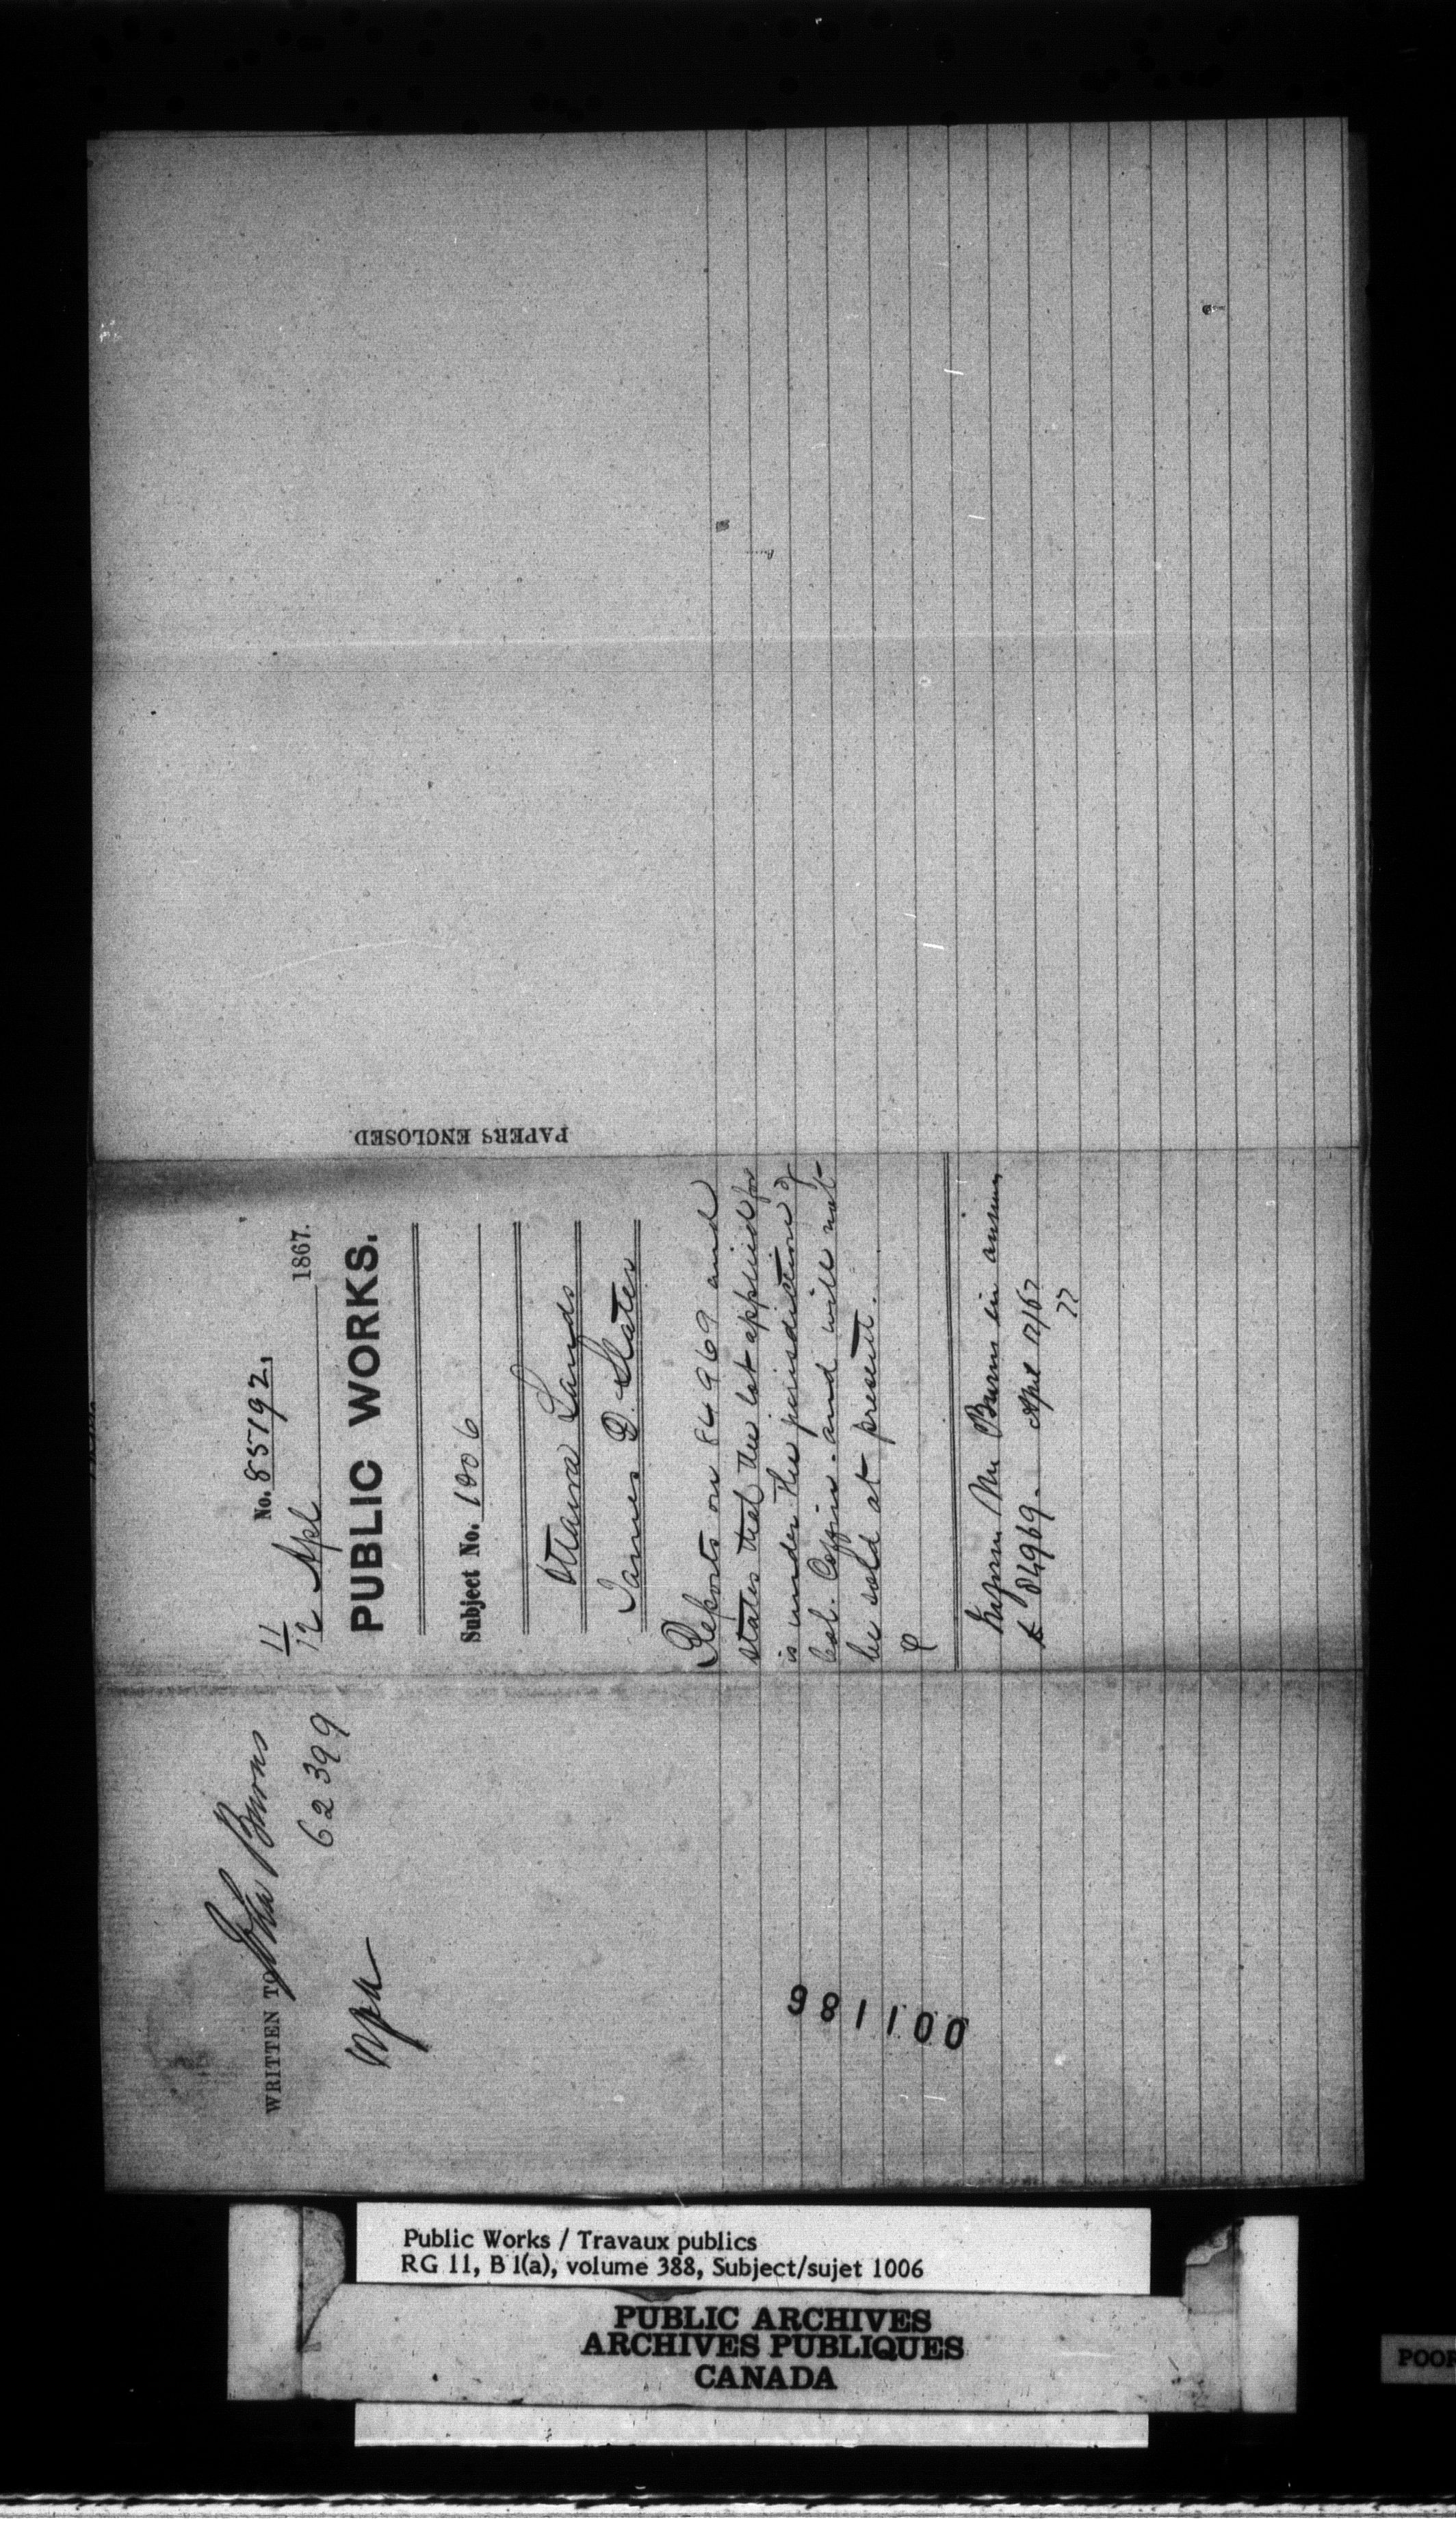 WRITTEN TO John Burns
62399
No. 85192,
11/12 Apl 1867.
PUBLIC WORKS.
Subject No. 1006
Ottawa Lands
James D. Slater
Reports on 84969 and
states that the lot applied for
is under the jurisdiction of
Col. Coffin - and will not
be sold at present.
Inform Mr Burns in answer
to 84969 - April 12/67
PAPERS ENCLOSED.
001186
Public Works / Travaux publics
RG 11, B 1(a), volume 388, Subject/sujet 1006
PUBLIC ARCHIVES
ARCHIVES PUBLIQUES
CANADA
POOR